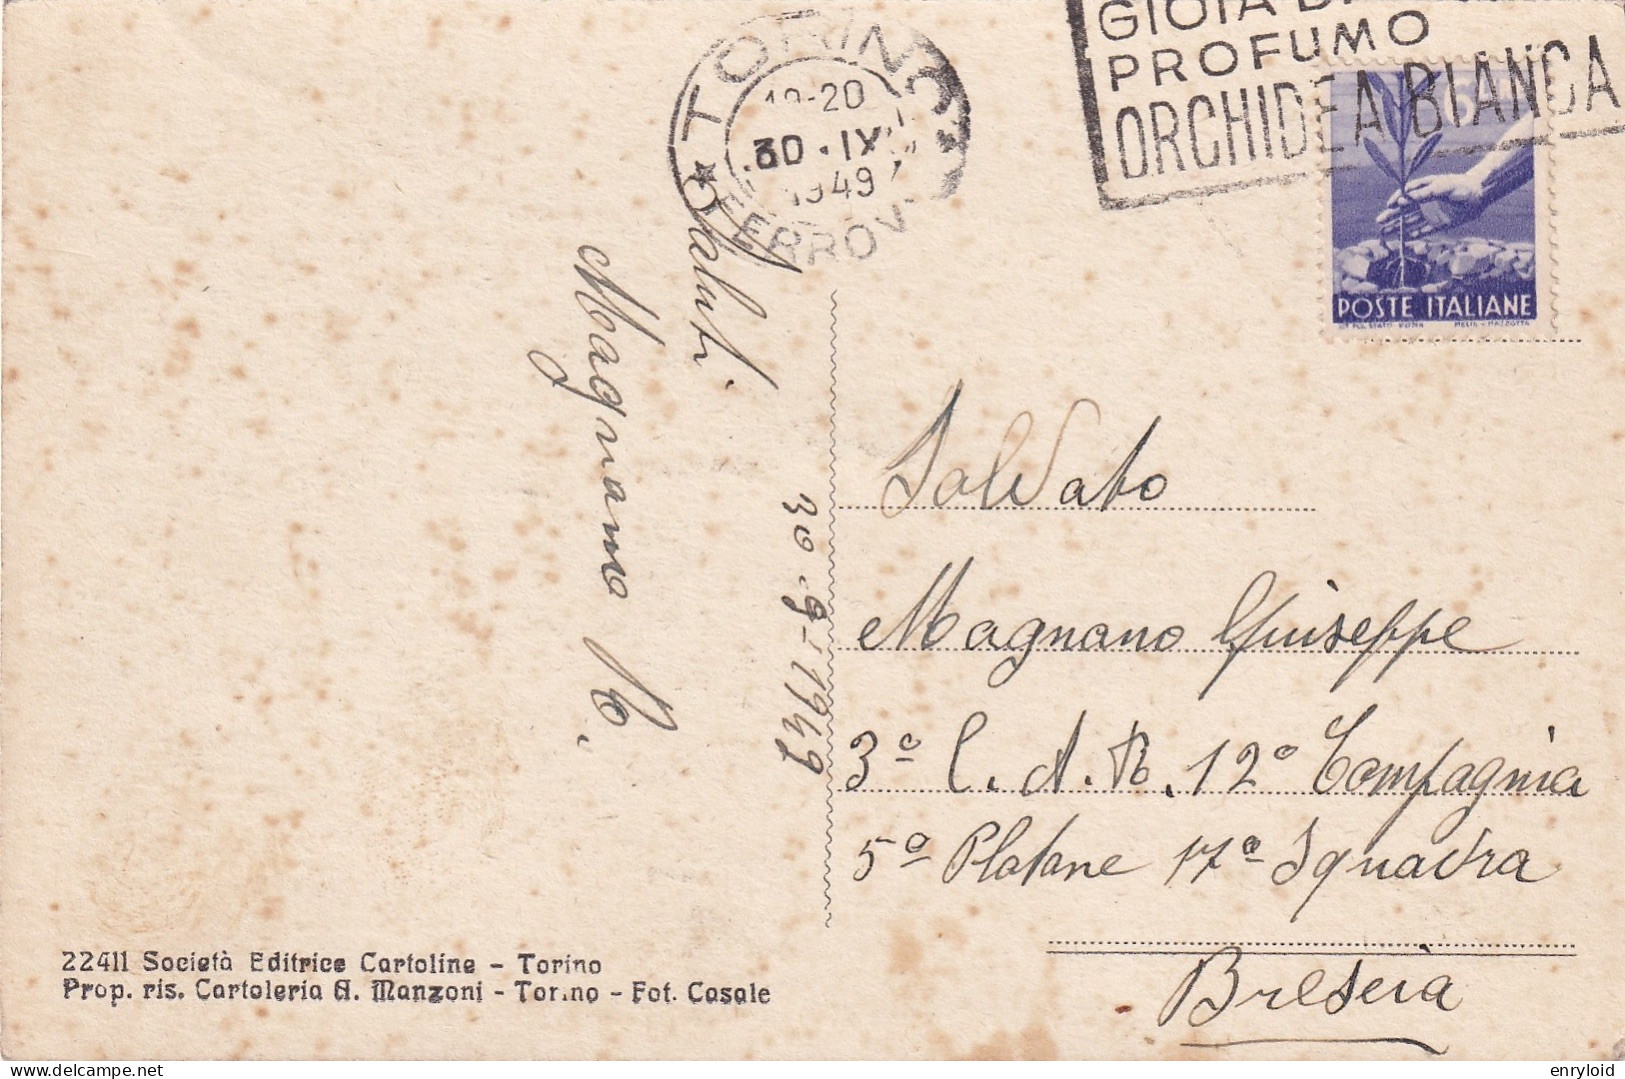 GIOIA
PROFUMO
ORCHIDEA BIANCA
TORINO
19-20
30·IX
1949
FERROV
POSTE ITALIANE
Saluti.
Magnano
30-9-1949
Soldato
Magnano Giuseppe
3º C.A.R. 12º Compagnia
5º Plotone 17ª Squadra
Brescia
22411 Società Editrice Cartoline - Torino
Prop. ris. Cartoleria A. Manzoni - Torino - Fot. Casale
delcampe.net
enryloid